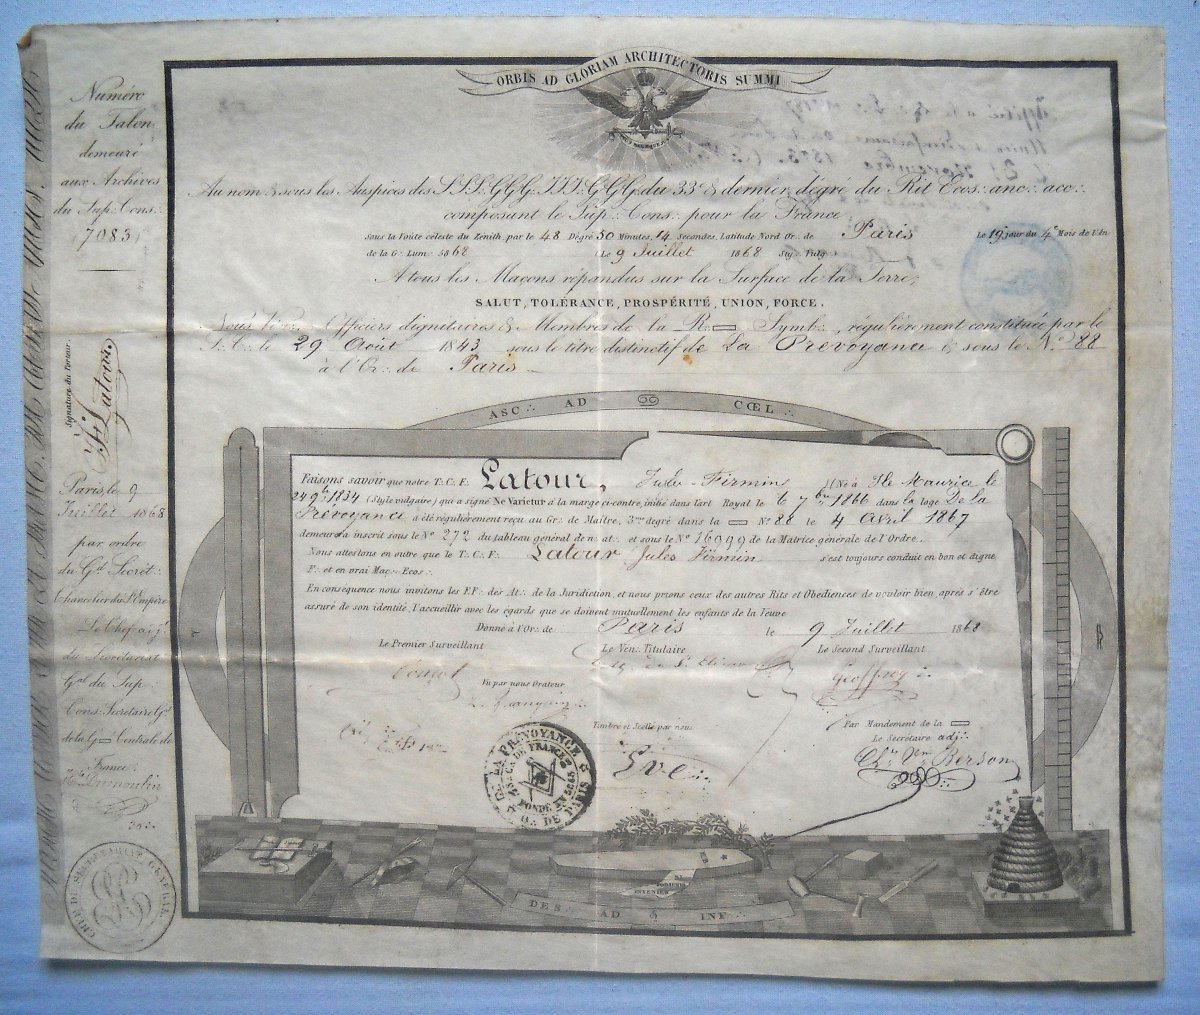 ORBIS AD GLORIAM ARCHITECTORIS SUMMI
Numéro
du Talon
demeuré
aux Archives
du Sup∴ Cons∴
7083
Signature du Porteur.
JF Latour
Paris, le 9
Juillet 1868
par ordre
du Gd Secrét∴
Chancelier du St Empire
Le Chef adj∴
du Secrétariat
Gal du Sup∴
Cons∴ Secrétaire Gal
de la G∴ Centrale de
France
Dumoulin
33∴
CHEF DU SECRÉTARIAT GÉNÉRAL
Au nom & sous les Auspices des S.S.S∴ G.G.G∴ I.I.I∴ G.G.G∴ du 33e & dernier degré du Rit Ecos∴ anc∴ acc∴
composant le Sup∴ Cons∴ pour la France,
sous la Voûte céleste du Zenith, par le 48 Dégré 50 Minutes, 14 Secondes, Latitude Nord Or∴ de Paris Le 19 jour du 4e Mois de l'An
de la G∴ Lum∴ 5868 Le 9 Juillet 1868 Sty∴ Vulg∴
A tous les Maçons répandus sur la Surface de la Terre,
SALUT, TOLÉRANCE, PROSPÉRITÉ, UNION, FORCE.
Nous Officiers dignitaires & Membres de la R∴ Symb∴, régulièrement constituée par le
S∴ C∴ le 29 Août 1843 sous le titre distinctif de La Prévoyance & sous le No 88
à l'Or∴ de Paris
ASC∴ AD CŒL∴
Faisons savoir que notre T∴ C∴ F∴ Latour, Jules Firmin Né à Ile Maurice le
24 9bre 1834 (Style vulgaire) qui a signé Ne Varietur à la marge ci-contre, initié dans l'art Royal le 7bre 1866 dans la loge De la
Prévoyance à été régulièrement reçu au Gr∴ de Maître, 3me degré dans la No 88 le 4 Avril 1867
demeura inscrit sous le No 272 du tableau général de n∴ at∴ et sous le No 16999 de la Matrice générale de l'Ordre.
Nous attestons en outre que le T∴ C∴ F∴ Latour Jules Firmin s'est toujours conduit en bon et digne
F∴ et en vrai Maç∴ Ecos∴
En conséquence nous invitons les F.F∴ des At∴ de la Juridiction, et nous prions ceux des autres Rits et Obédiences de vouloir bien, après s'être
assuré de son identité, l'accueillir avec les égards que se doivent mutuellement les enfants de la Veuve
Donné à l'Or∴ de Paris le 9 Juillet 1868
Le Premier Surveillant Le Vén∴ Titulaire Le Second Surveillant
Geoffroy
Vu par nous Orateur
Timbré et Scellé par nous
Par Mandement de la
Le Secrétaire adj∴
Berson
LA PREVOYANCE
FONDÉ EN 5843
O∴ DE PARIS
DES∴ AD INF∴
INVENIES